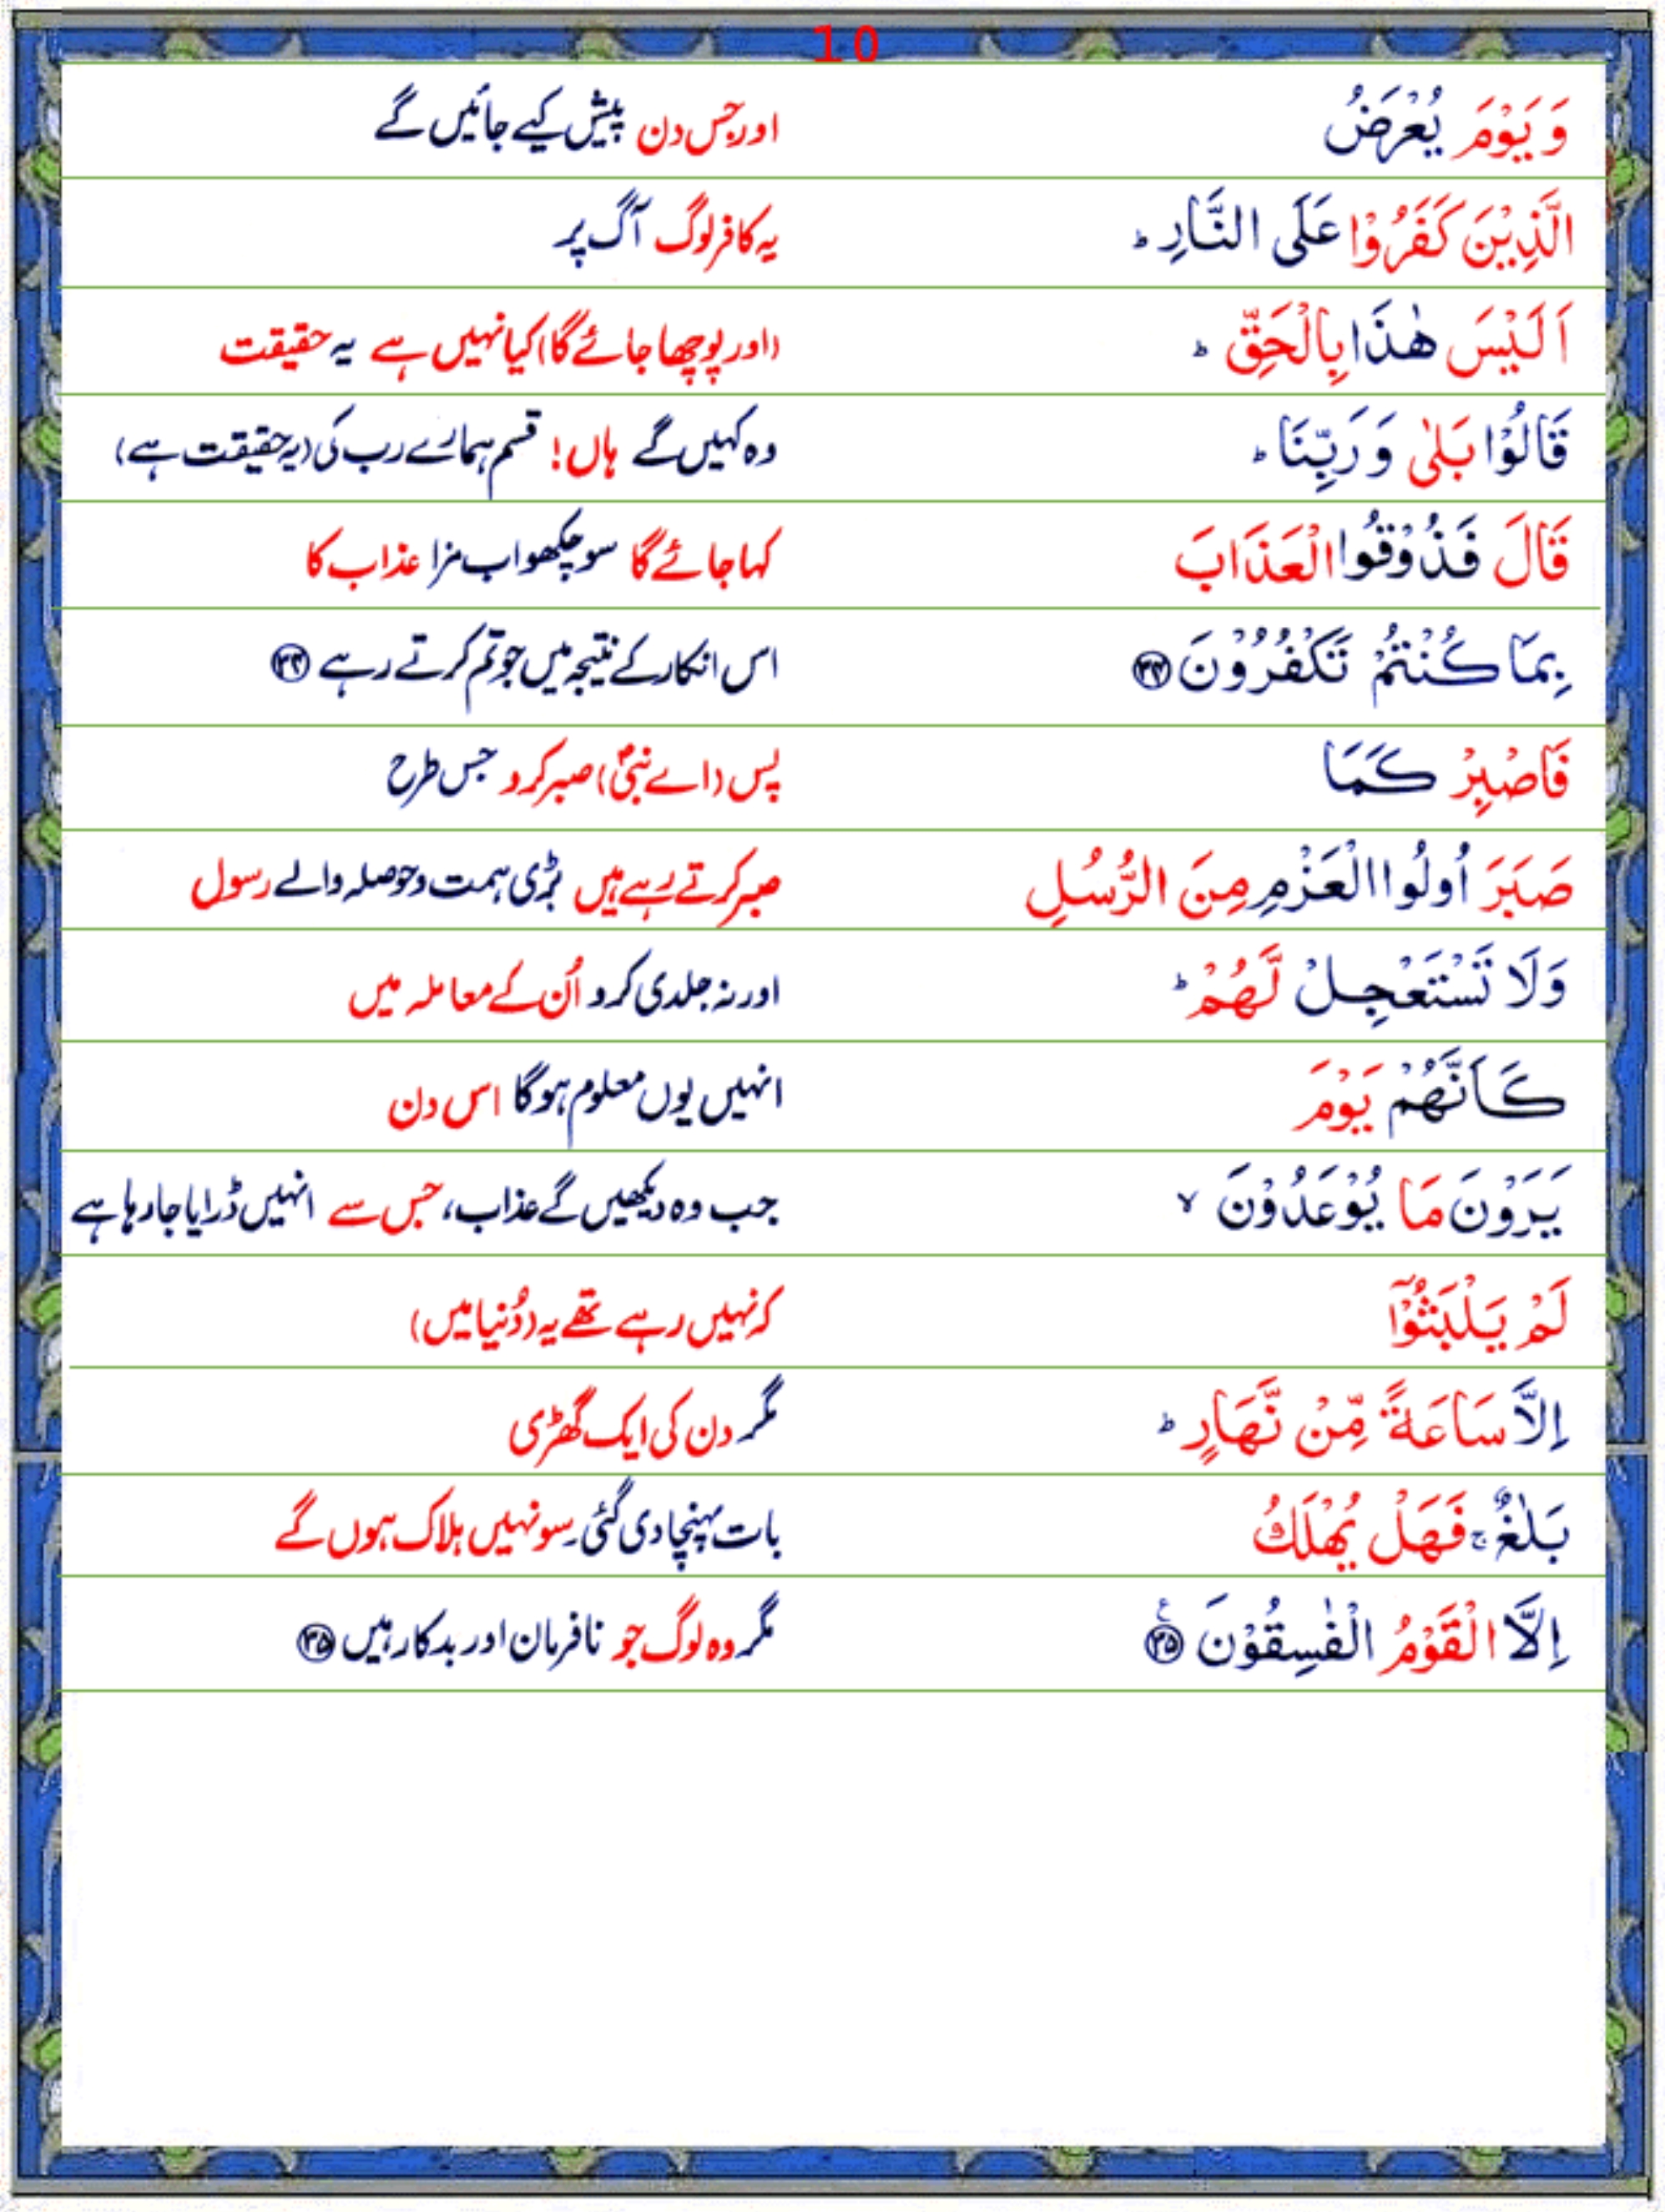 10
وَيَوْمَ يُعْرَضُ اور جس دن پیش کیے جائیں گے
الَّذِيْنَ كَفَرُوْا عَلَى النَّارِ ؕ یہ کافر لوگ آگ پر
اَلَيْسَ هٰذَا بِالْحَقِّ ؕ (اور پوچھا جائے گا) کیا نہیں ہے یہ حقیقت
قَالُوْا بَلٰى وَرَبِّنَا ؕ وہ کہیں گے ہاں! قسم ہمارے رب کی (یہ حقیقت ہے)
قَالَ فَذُوْقُوا الْعَذَابَ کہا جائے گا سو چکھو اب مزا عذاب کا
بِمَا كُنْتُمْ تَكْفُرُوْنَ ۳۴ اس انکار کے نتیجہ میں جو تم کرتے رہے ۳۴
فَاصْبِرْ كَمَا پس (اے نبیؐ) صبر کرو جس طرح
صَبَرَ اُولُوا الْعَزْمِ مِنَ الرُّسُلِ صبر کرتے رہے ہیں بڑی ہمت و حوصلہ والے رسول
وَلَا تَسْتَعْجِلْ لَّهُمْ ؕ اور نہ جلدی کرو اُن کے معاملہ میں
كَاَنَّهُمْ يَوْمَ انہیں یوں معلوم ہوگا اس دن
يَرَوْنَ مَا يُوْعَدُوْنَ ۙ جب وہ دیکھیں گے عذاب، جس سے انہیں ڈرایا جا رہا ہے
لَمْ يَلْبَثُوْۤا کہ نہیں رہے تھے یہ (دُنیا میں)
اِلَّا سَاعَةً مِّنْ نَّهَارٍ ؕ مگر دن کی ایک گھڑی
بَلٰغٌ ۚ فَهَلْ يُهْلَكُ بات پہنچا دی گئی۔ سو نہیں ہلاک ہوں گے
اِلَّا الْقَوْمُ الْفٰسِقُوْنَ ۳۵ ع مگر وہ لوگ جو نافرمان اور بدکار ہیں ۳۵